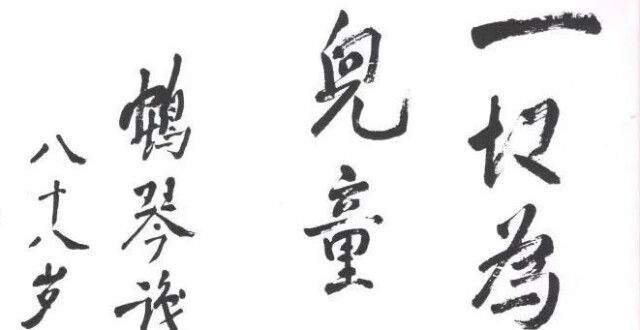 一切為
兒童
鶴琴
八十八岁